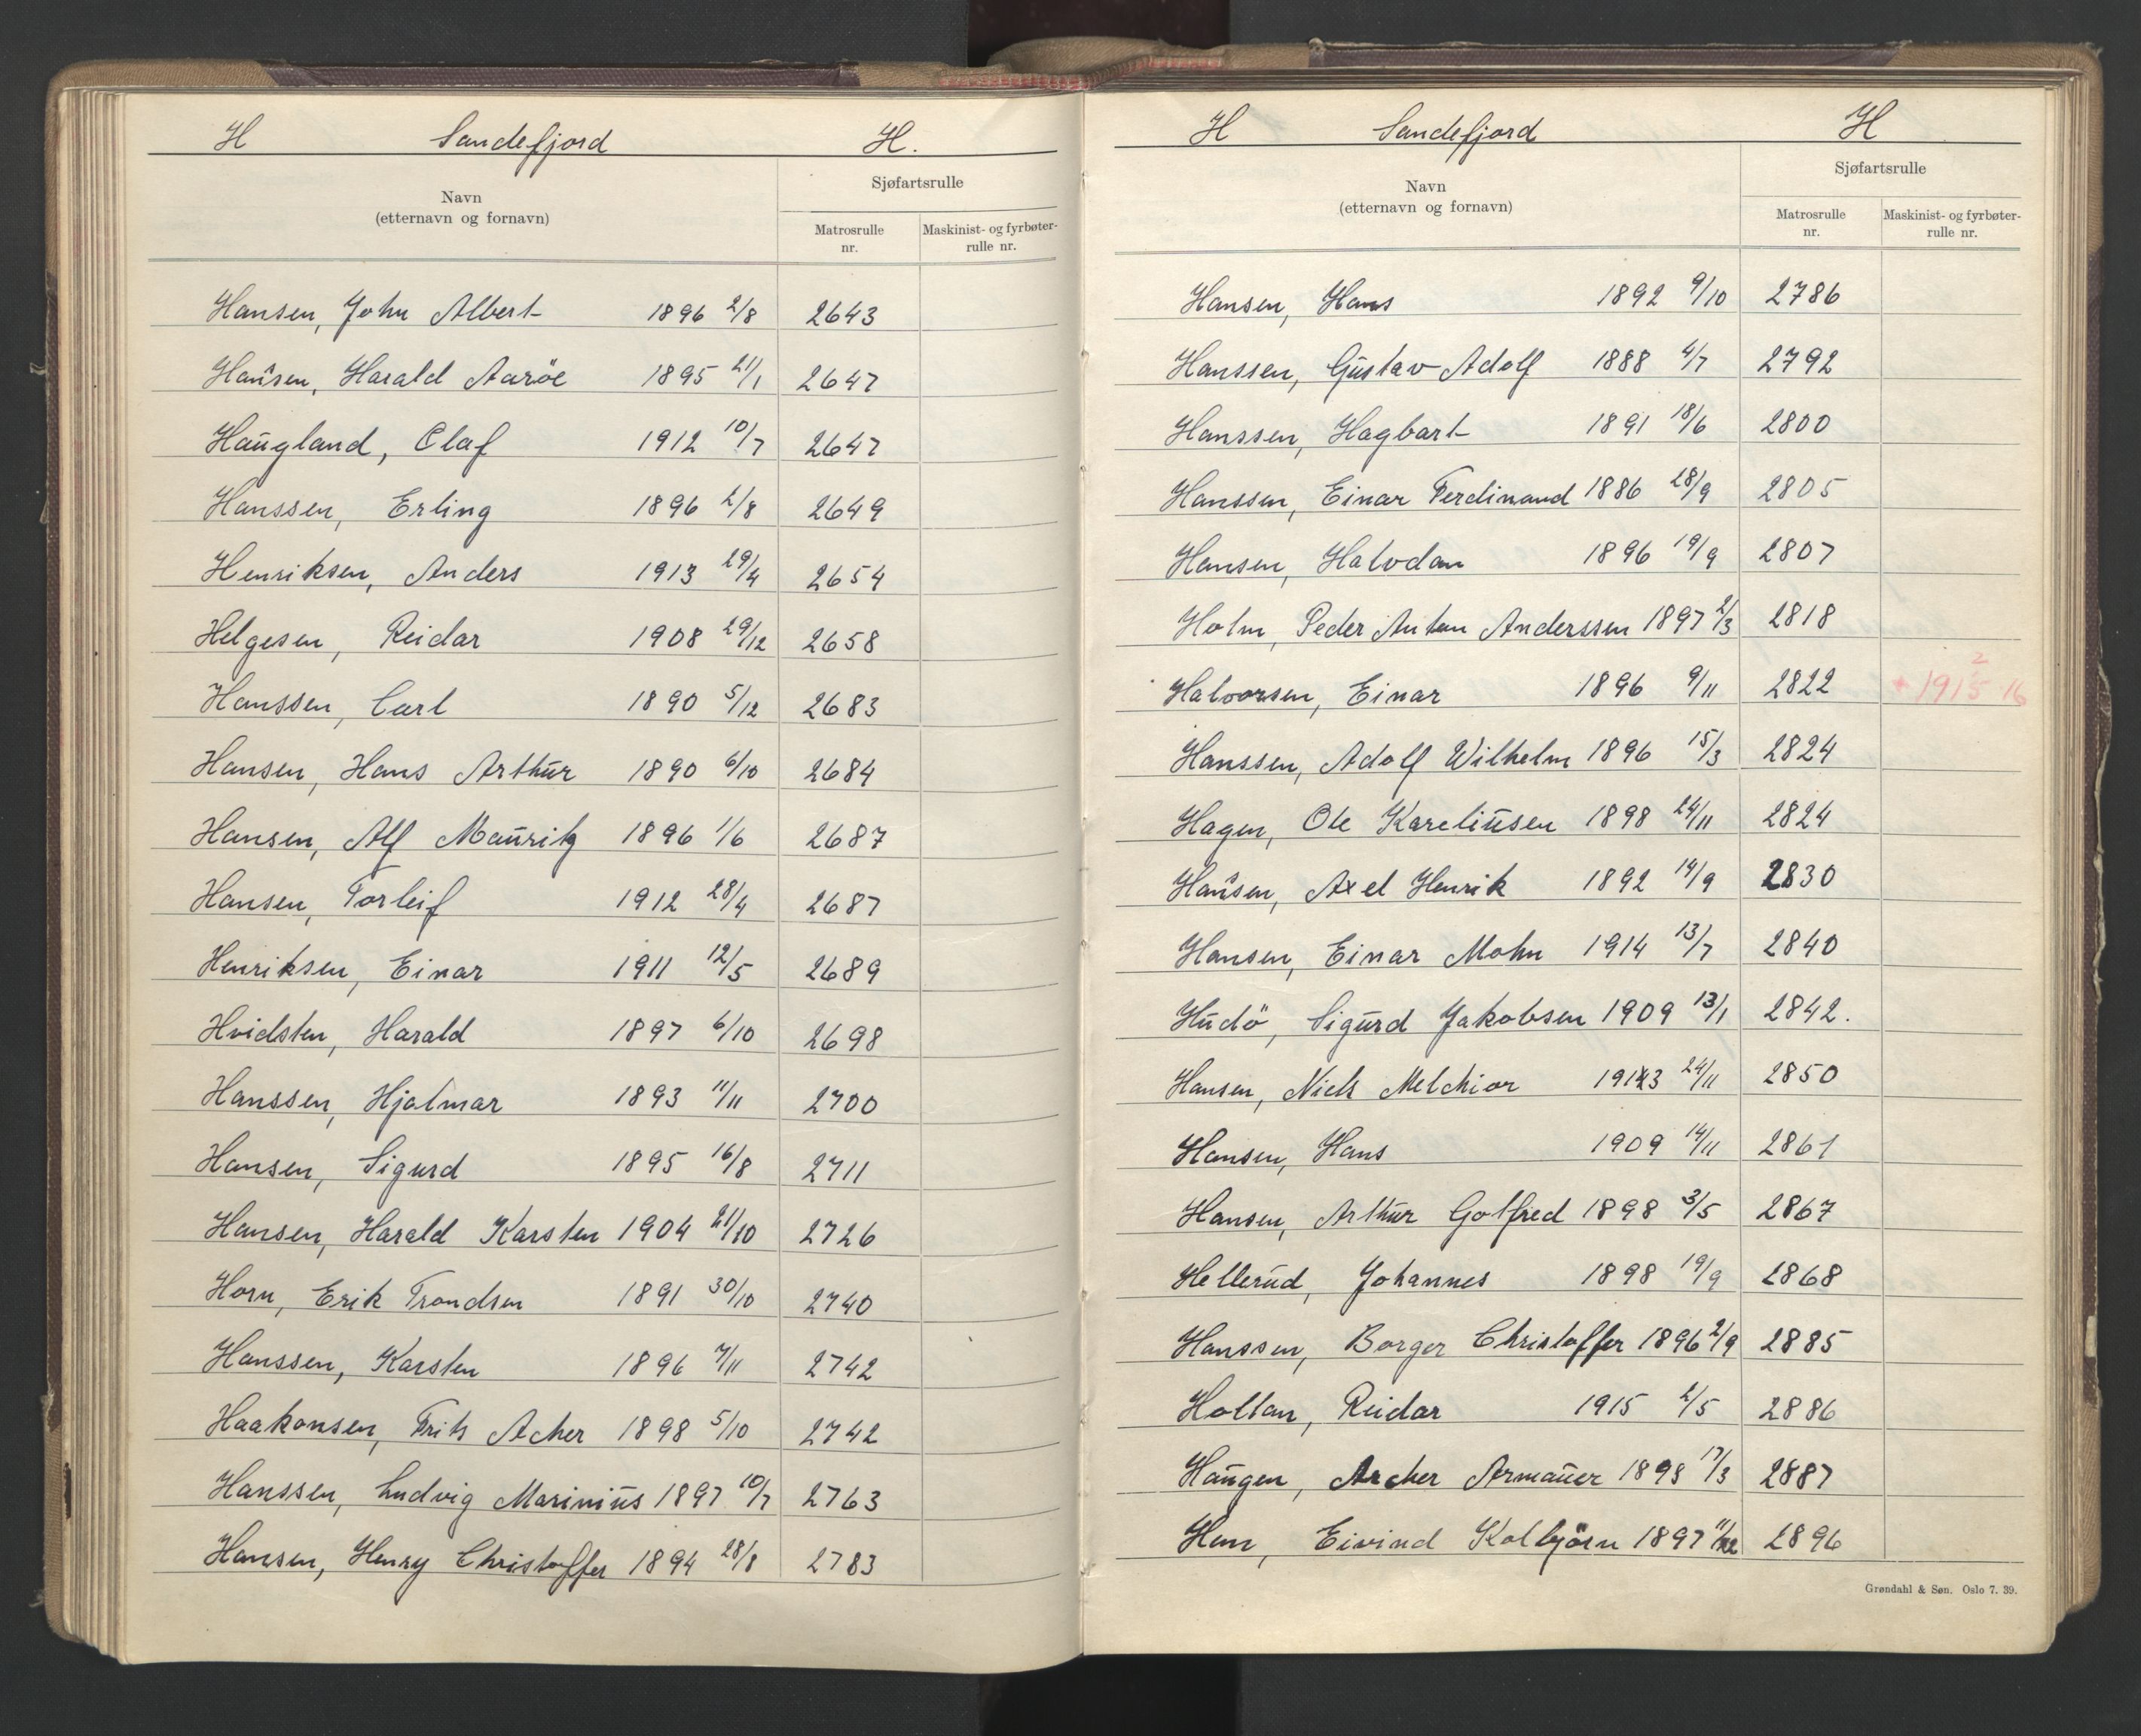 H Sandefjord H.
Sjøfartsrulle
Navn
(etternavn og fornavn)
Matrosrulle nr.
Maskinist- og fyrbøter-rulle nr.
Hansen, John Albert 1896 2/8 2643
Hansen, Harald Aaröe 1895 21/1 2647
Haugland, Olaf 1912 10/7 2647
Hanssen, Erling 1896 2/8 2649
Henriksen, Anders 1913 29/4 2654
Helgesen, Reidar 1908 29/12 2658
Hanssen, Carl 1890 5/12 2683
Hansen, Hans Arthur 1890 6/10 2684
Hansen, Alf Mauritz 1896 1/6 2687
Hansen, Torleif 1912 28/4 2687
Henriksen, Einar 1911 12/5 2689
Hvidsten, Harald 1897 6/10 2698
Hanssen, Hjalmar 1893 11/11 2700
Hansen, Sigurd 1895 16/8 2711
Hansen, Harald Karsten 1904 21/10 2726
Horn, Erik Trondsen 1891 30/10 2740
Hanssen, Karsten 1896 7/11 2742
Haakonsen, Frits Acher 1898 5/10 2742
Hanssen, Ludvig Marinius 1897 10/7 2763
Hansen, Henry Christoffer 1894 28/8 2783
H Sandefjord H
Sjøfartsrulle
Navn
(etternavn og fornavn)
Matrosrulle nr.
Maskinist- og fyrbøter-rulle nr.
Hansen, Hans 1892 9/10 2786
Hanssen, Gustav Adolf 1888 4/7 2792
Hanssen, Hagbart 1891 18/6 2800
Hanssen, Einar Ferdinand 1886 28/9 2805
Hansen, Halvdan 1896 19/9 2807
Holm, Peder Anton Anderssen 1897 2/3 2818
Halvorsen, Einar 1896 9/11 2822
Hanssen, Adolf Wilhelm 1896 15/3 2824
Hagen, Ole Kareliusen 1898 24/11 2824
Hansen, Axel Henrik 1892 14/9 2830
Hansen, Einar Mohn 1914 13/7 2840
Hudö, Sigurd Jakobsen 1909 13/1 2842.
Hansen, Niels Melchior 24/11 2850
Hansen, Hans 1909 14/11 2861
Hansen, Arthur Gotfred 1898 3/5 2867
Hellerud, Johannes 1898 19/9 2868
Hanssen, Borger Christoffer 1896 2/9 2885
Holtan, Reidar 1915 2/5 2886
Haugen, Archer Armauer 1898 17/3 2887
Hem, Eivind Kolbjörn 1897 2896
Grøndahl & Søn. Oslo 7. 39.